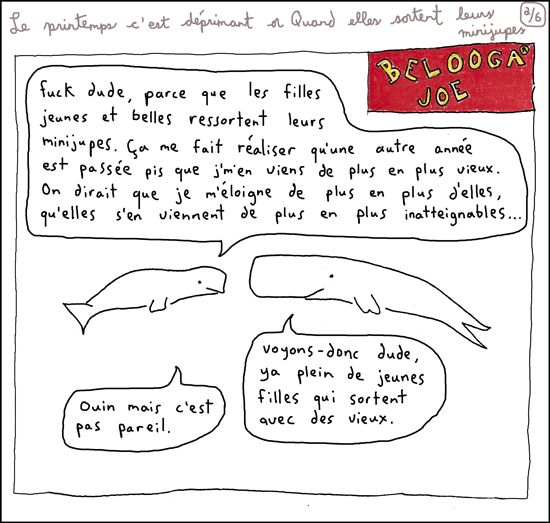 Le printemps c'est déprimant or Quand elles sortent leurs
minijupes
2/6
BELOOGA
JOE
fuck dude, parce que les filles
jeunes et belles ressortent leurs
minijupes. Ça me fait réaliser qu'une autre année
est passée pis que j'm'en viens de plus en plus vieux.
On dirait que je m'éloigne de plus en plus d'elles,
qu'elles s'en viennent de plus en plus inatteignables...
voyons-donc dude,
ya plein de jeunes
filles qui sortent
avec des vieux.
Ouin mais c'est
pas pareil.